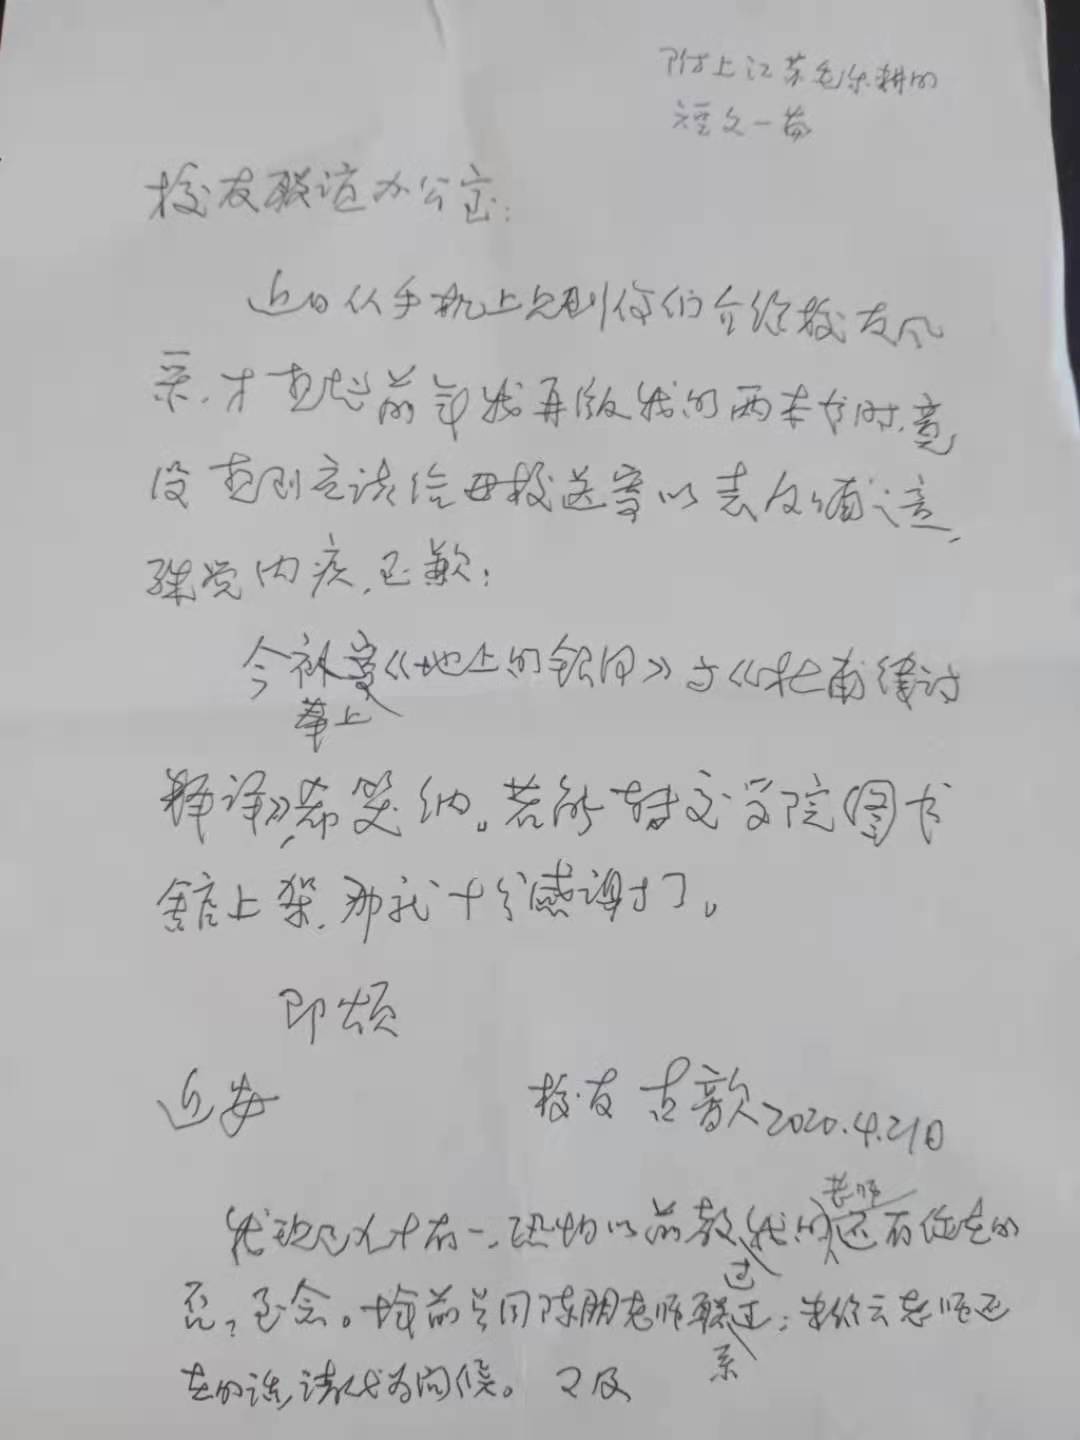 附上江苏毛乐耕的
短文一篇
校友联谊办公室:
近日从手机上见到你们介绍校友风
采,才想起前年我再版我的两本书时,竟
没想到应该给母校送寄以表反哺之意,
殊觉内疚,至歉;
今补寄奉上《地上的银河》与《杜甫律诗
释译》,希笑纳。若能转交学院图书
馆上架,那就十分感谢了。
即颂
近安
校友 古歌 2020.4.21日
我现已八十有一,恐怕以前教过我的老师还有健在的
否,至念。十年前曾同陈朋老师联系过;朱绍云老师还
在的话,请代为问候。又及